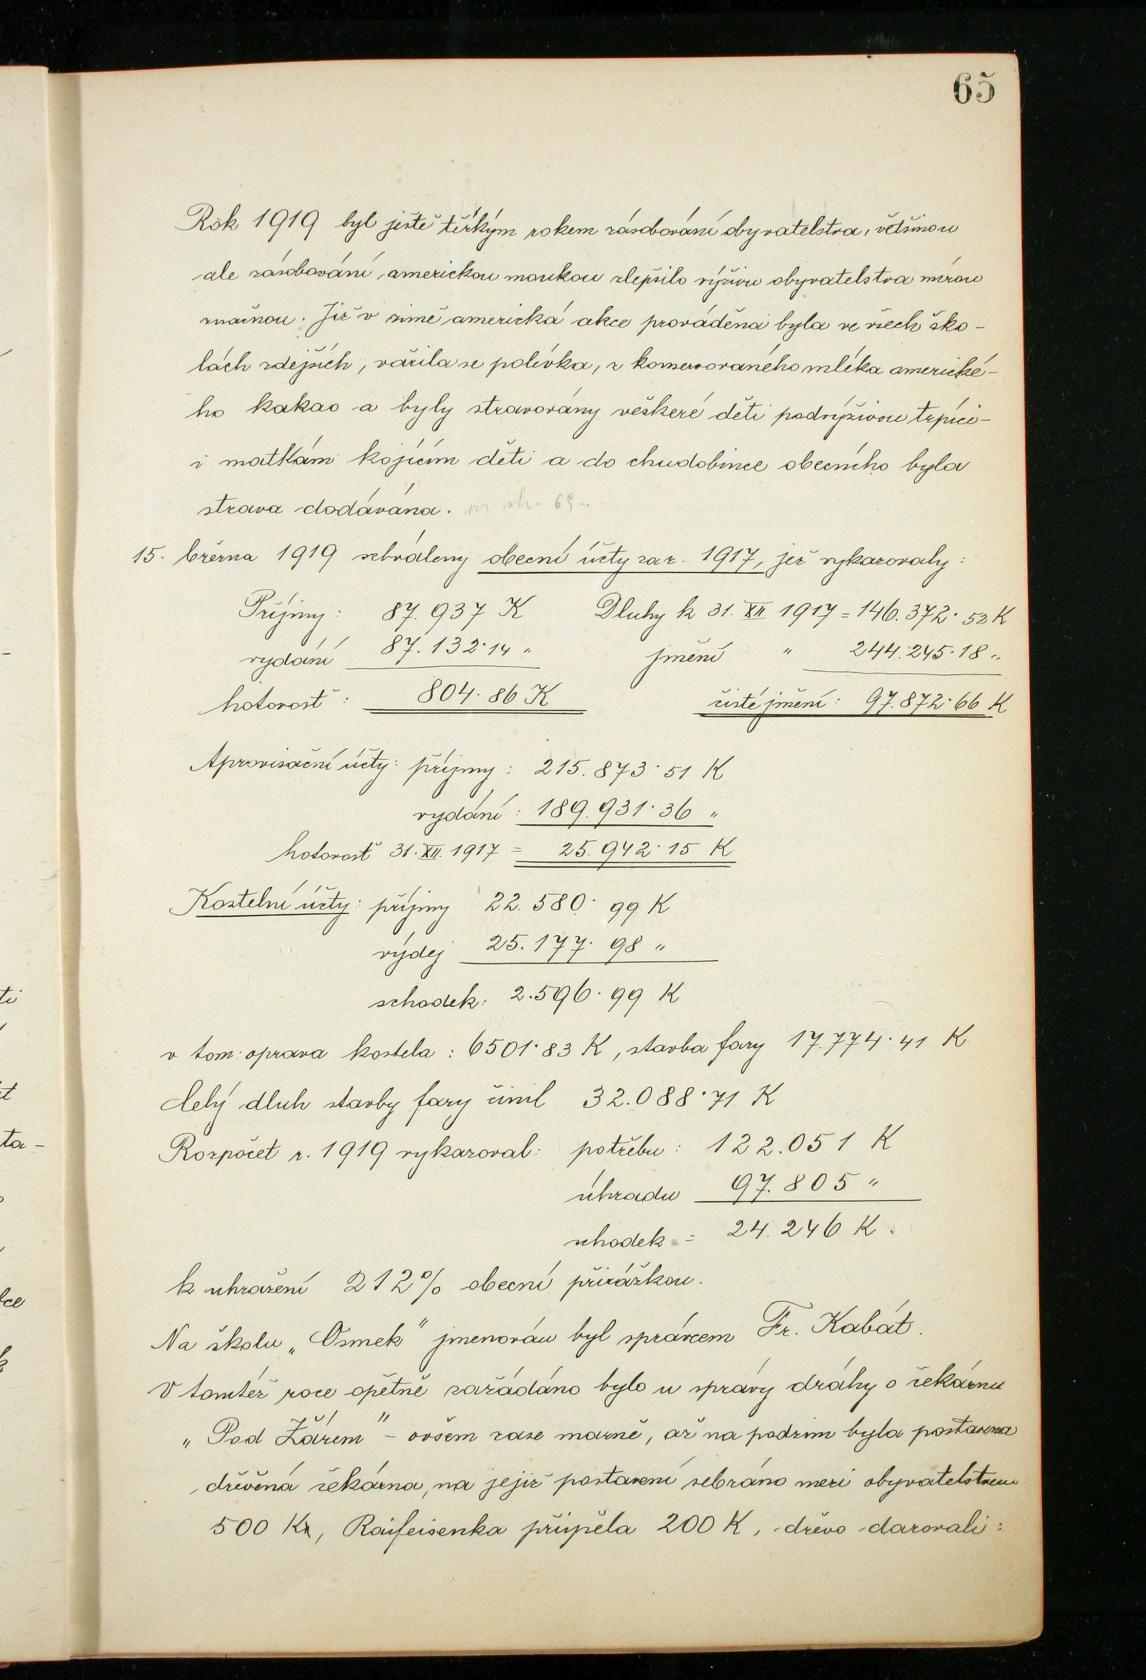 65
Rok 1919 byl ještě těžkým rokem zásobování obyvatelstva, většinou
ale zásobování americkou moukou zlepšilo výživu obyvatelstva měrou
značnou. Již v zimě americká akce prováděna byla ve všech ško-
lách zdejších, vařila se polévka, z konservovaného mléka americké-
ho kakao a byly stravovány veškeré děti podvýživou trpící -
i matkám kojícím děti a do chudobince obecního byla
strava dodávána. viz str. 69.
15. března 1919 schváleny obecní účty za r. 1917, jež vykazovaly:
Příjmy: 87.937 K Dluhy k 31. XII 1917 = 146.372·52 K
vydání 87.132·14 „ jmění „ 244.245·18 „
hotovost: 804·86 K čisté jmění: 97.872·66 K
Aprovisační účty: příjmy: 215.873·51 K
vydání: 189.931·36 „
hotovost 31. XII. 1917 = 25.942·15 K
Kostelní účty: příjmy 22.580·99 K
výdej 25.177·98 „
schodek: 2.596·99 K
v tom: oprava kostela: 6501·83 K, stavba fary 17.774·41 K
Celý dluh stavby fary činil 32.088·71 K
Rozpočet r. 1919 vykazoval: potřebu: 122.051 K
úhradu 97.805 „
schodek = 24.246 K.
k uhražení 212% obecní přirážkou.
Na školu „Osmek" jmenován byl správcem Fr. Kabát.
V tomtéž roce opětně zažádáno bylo u správy dráhy o čekárnu
„Pod Žářem" - ovšem zase marně, až na podzim byla postavena
dřěvěná čekárna, na jejíž postavení sebráno mezi obyvatelstvem
500 K, Raifeisenka přispěla 200 K, dřevo darovali: